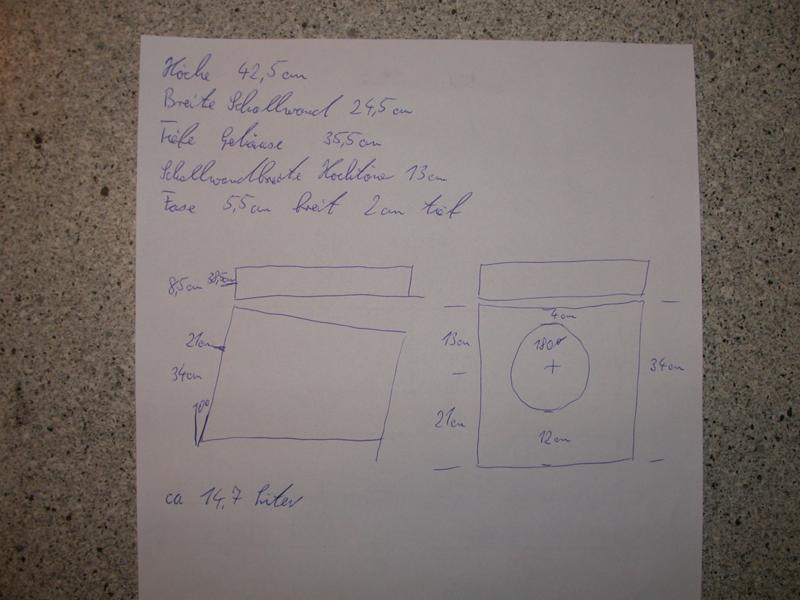 Höhe 42,5cm
Breite Schallwand 24,5cm
Tiefe Gehäuse 35,5cm
Schallwandbreite Hochtöner 13cm
Fase 5,5cm breit 2cm tief
8,5cm 38,5cm
21cm
34cm
10°
4cm
13cm
180
34cm
21cm
12cm
ca 14,7 Liter